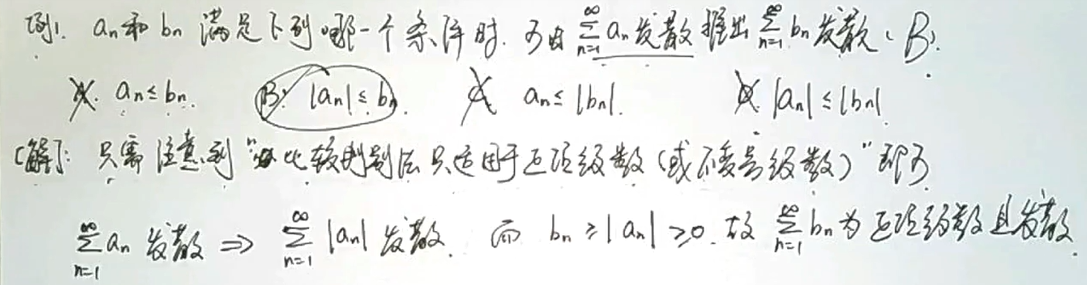 例1. aₙ和 bₙ 满足下列哪一个条件时. 可由 ∑_{n=1}^{∞} aₙ发散 推出 ∑_{n=1}^{∞} bₙ发散 ( B ).
A. aₙ ≤ bₙ. B. |aₙ| ≤ bₙ. C. aₙ ≤ |bₙ|. D. |aₙ| ≤ |bₙ|
[解]: 只需注意到 “比较判别法只适用于正项级数 (或不变号级数)” 即可
∑_{n=1}^{∞} aₙ 发散 ⇒ ∑_{n=1}^{∞} |aₙ| 发散. 而 bₙ ≥ |aₙ| ≥ 0. 故 ∑_{n=1}^{∞} bₙ 为正项级数且发散.